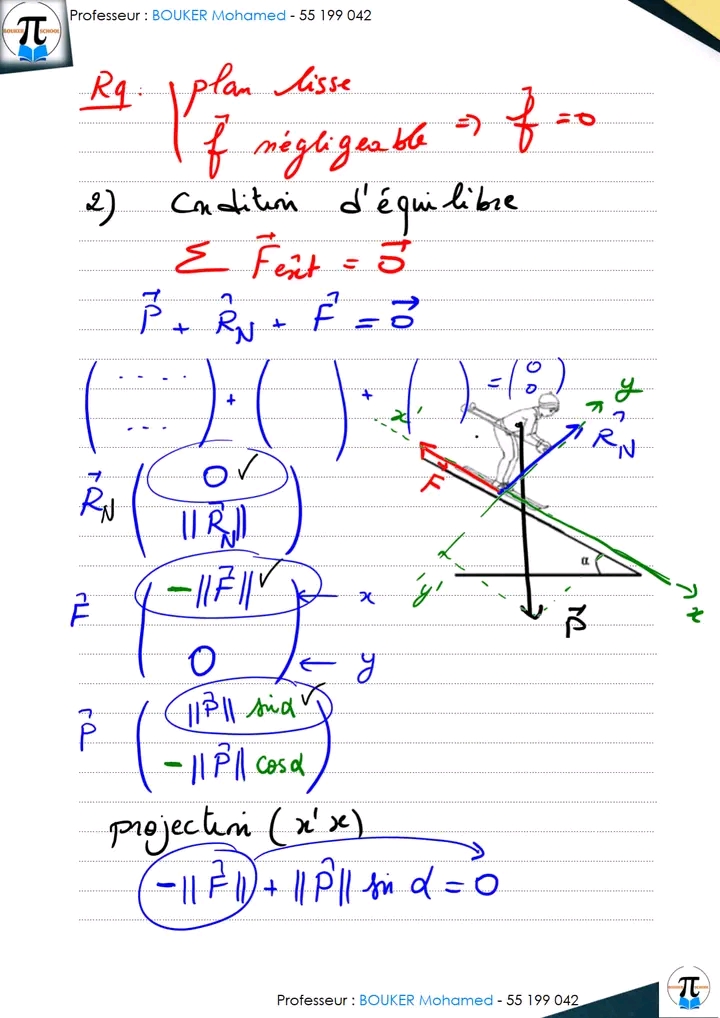 Professeur : BOUKER Mohamed - 55 199 042
π
BOUKER SCHOOL
Rq : plan lisse
f⃗ négligeable => f⃗ = 0
2) Condition d'équilibre
Σ F⃗ext = 0⃗
P⃗ + R⃗N + F⃗ = 0⃗
( ..... ... ) + ( ) + ( ) = ( 0 0 )
y
x'
R⃗N
F
R⃗N ( 0 ✓
||R⃗N|| )
α
y'
x
P⃗
F⃗ ( -||F⃗|| ✓ ← x
0 ) ← y
P⃗ ( ||P⃗|| sinα ✓
-||P⃗|| cosα )
projection (x'x)
-||F⃗|| + ||P⃗|| sin α = 0
Professeur : BOUKER Mohamed - 55 199 042
π